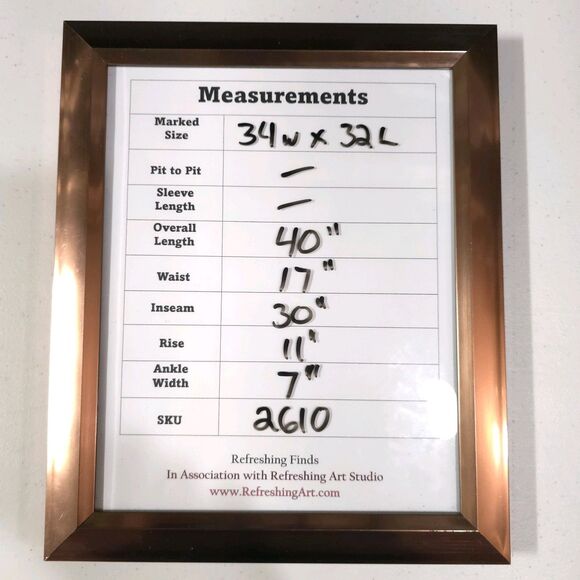 Measurements
Marked Size 34W x 32L
Pit to Pit —
Sleeve Length —
Overall Length 40"
Waist 17"
Inseam 30"
Rise 11"
Ankle Width 7"
SKU 2610
Refreshing Finds
In Association with Refreshing Art Studio
www.RefreshingArt.com